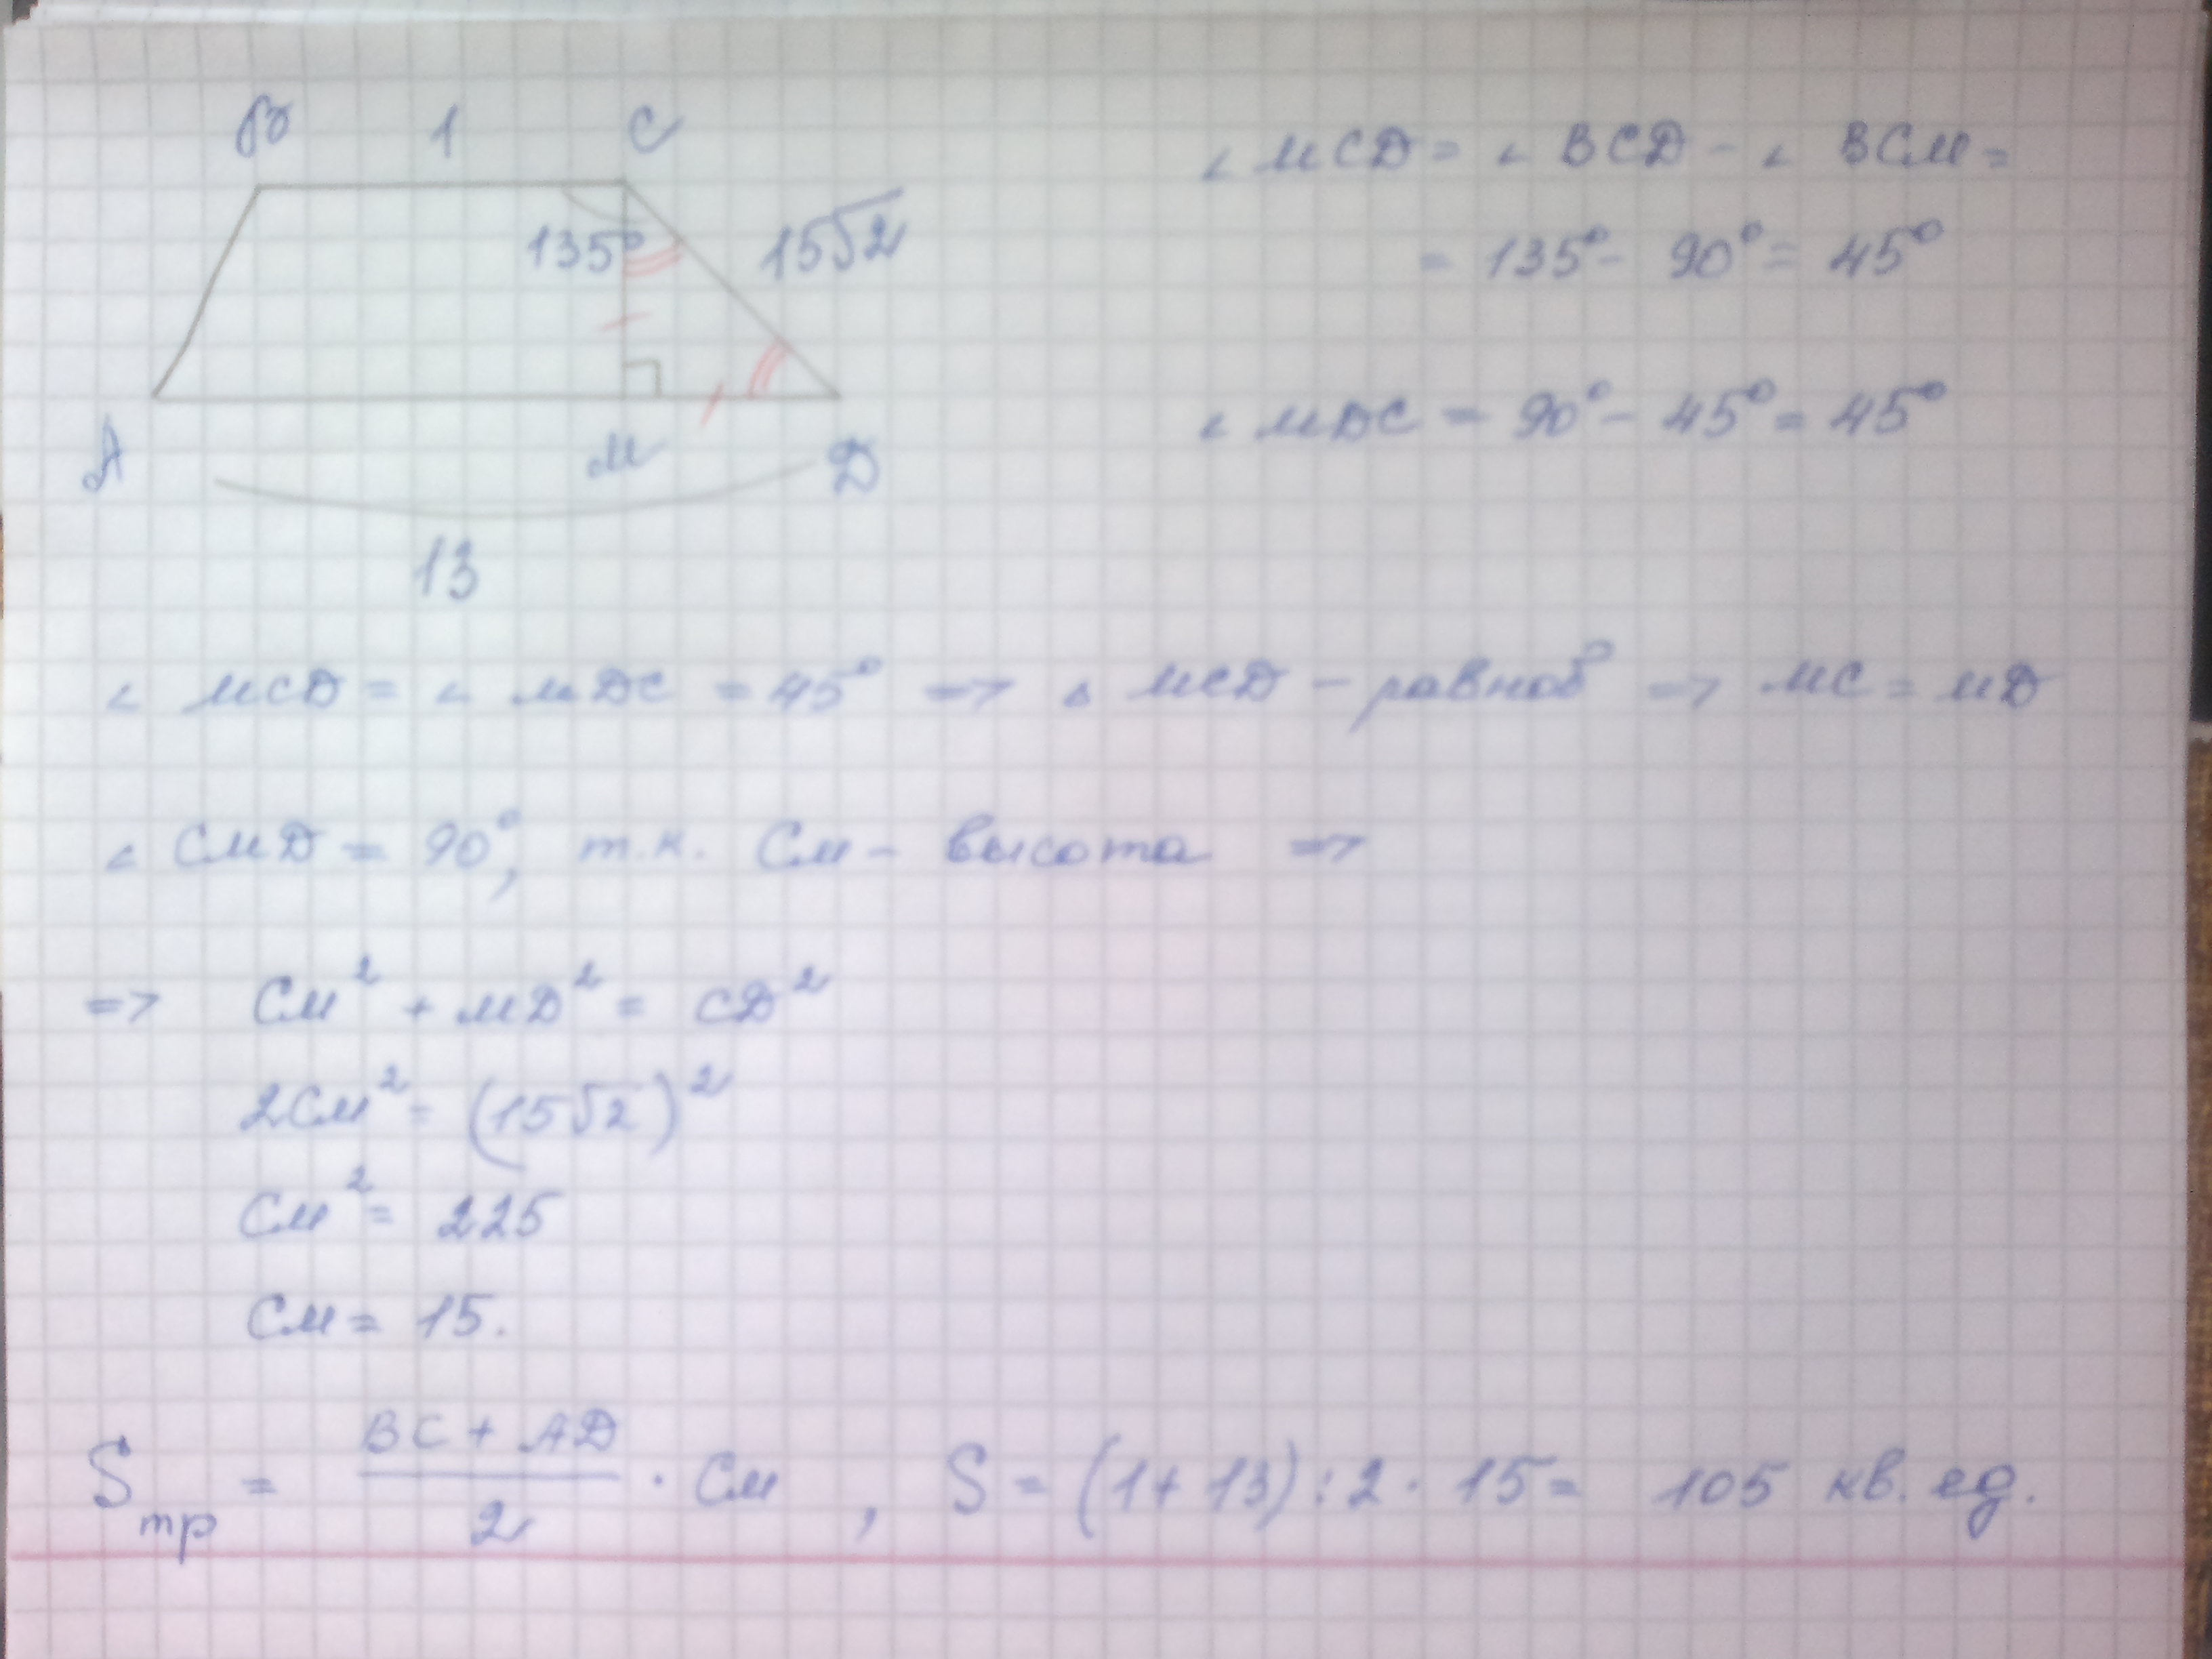 B 1 C
135° 15√2
A M D
13
∠ MCD = ∠ BCD - ∠ BCM =
= 135° - 90° = 45°
∠ MDC = 90° - 45° = 45°
∠ MCD = ∠ MDC = 45° => △ MCD - равноб => MC = MD
∠ CMD = 90°, т.к. CM - высота =>
=> CM² + MD² = CD²
2CM² = (15√2)²
CM² = 225
CM = 15.
Sтр = (BC + AD)/2 · CM , S = (1+13):2·15 = 105 кв. ед.